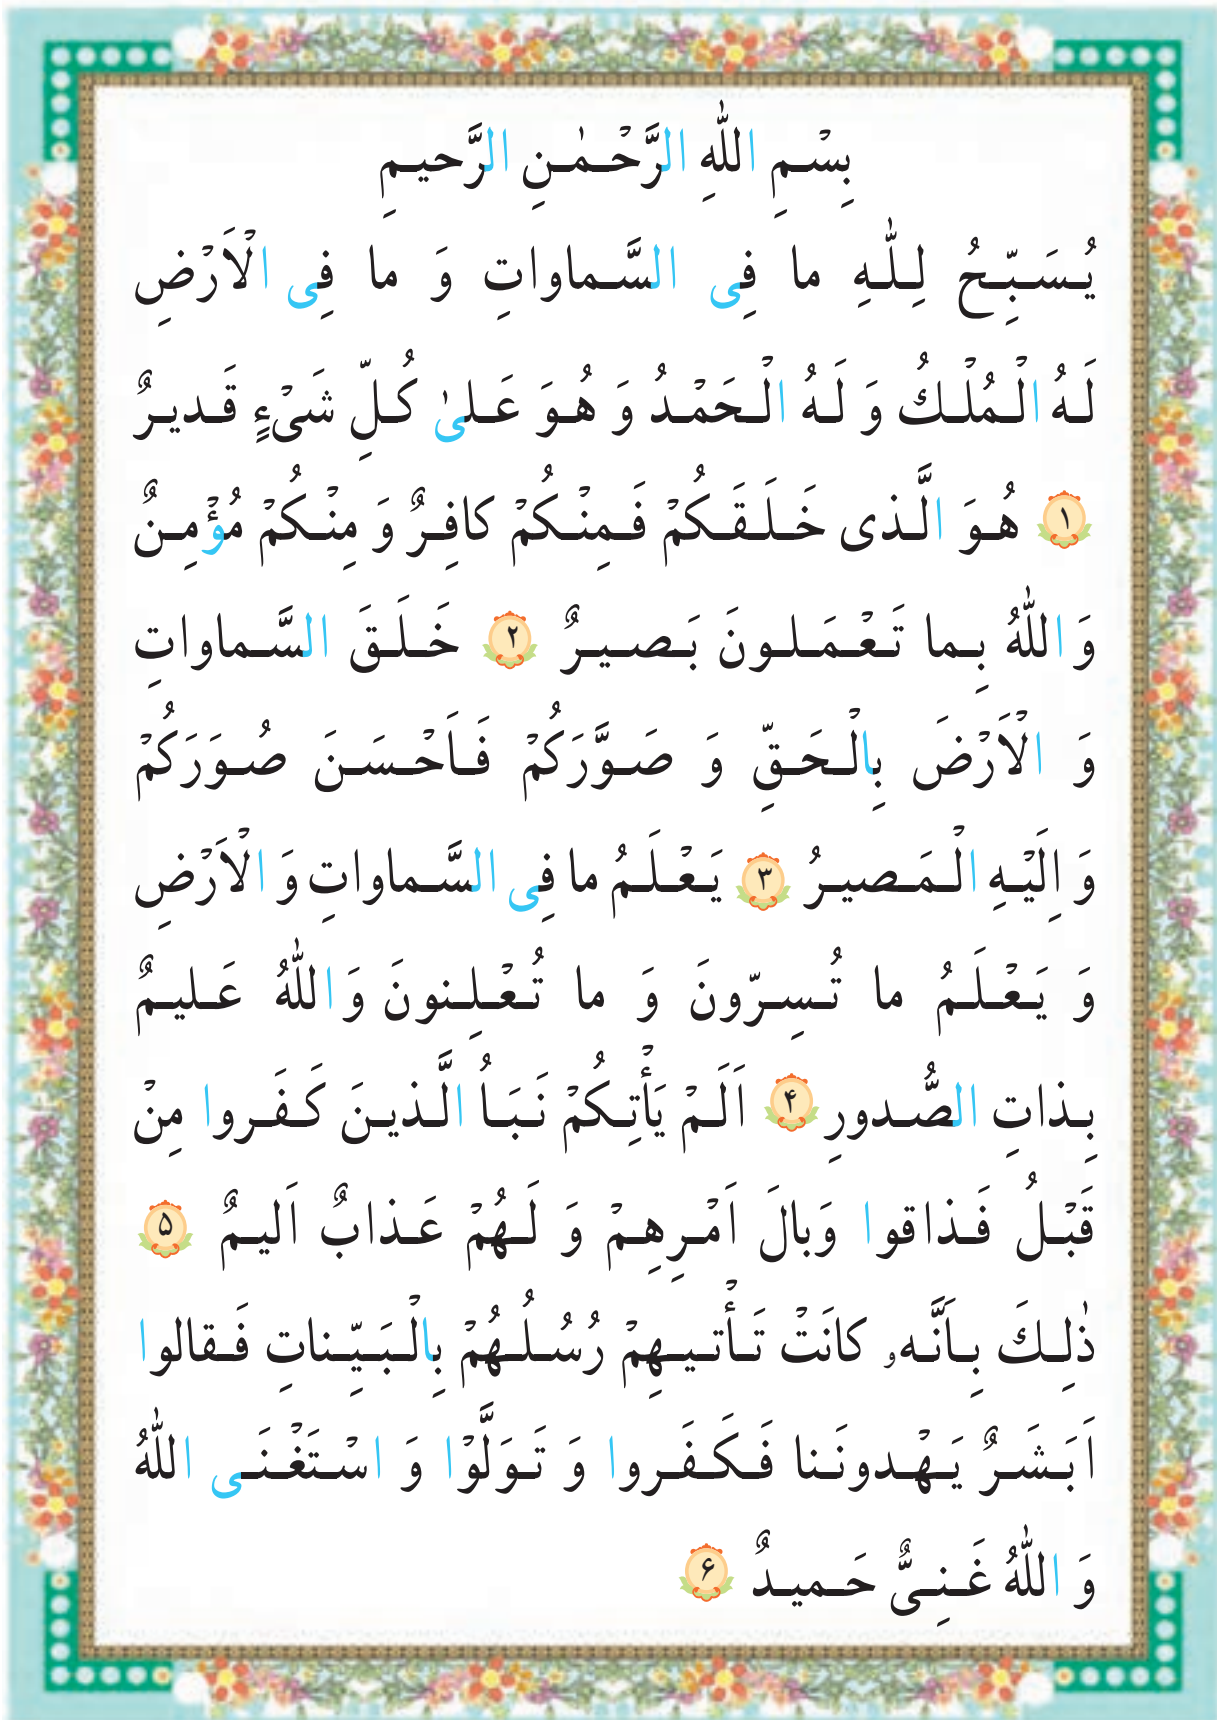 بِسْمِ اللّٰهِ الرَّحْمٰنِ الرَّحیمِ
یُسَبِّحُ لِلّٰهِ ما فِی السَّماواتِ وَ ما فِی الْاَرْضِ
لَهُ الْمُلْكُ وَ لَهُ الْحَمْدُ وَ هُوَ عَلیٰ كُلِّ شَیْءٍ قَدیرٌ
۱ هُوَ الَّذی خَلَقَكُمْ فَمِنْكُمْ كافِرٌ وَ مِنْكُمْ مُؤْمِنٌ
وَ اللّٰهُ بِما تَعْمَلونَ بَصیرٌ ۲ خَلَقَ السَّماواتِ
وَ الْاَرْضَ بِالْحَقِّ وَ صَوَّرَكُمْ فَاَحْسَنَ صُوَرَكُمْ
وَ اِلَیْهِ الْمَصیرُ ۳ یَعْلَمُ ما فِی السَّماواتِ وَ الْاَرْضِ
وَ یَعْلَمُ ما تُسِرّونَ وَ ما تُعْلِنونَ وَ اللّٰهُ عَلیمٌ
بِذاتِ الصُّدورِ ۴ اَلَمْ یَأْتِكُمْ نَبَأُ الَّذینَ كَفَروا مِنْ
قَبْلُ فَذاقوا وَبالَ اَمْرِهِمْ وَ لَهُمْ عَذابٌ اَلیمٌ ۵
ذٰلِكَ بِاَنَّهو كانَتْ تَأْتیهِمْ رُسُلُهُمْ بِالْبَیِّناتِ فَقالوا
اَبَشَرٌ یَهْدونَنا فَكَفَروا وَ تَوَلَّوْا وَ اسْتَغْنَی اللّٰهُ
وَ اللّٰهُ غَنِیٌّ حَمیدٌ ۶